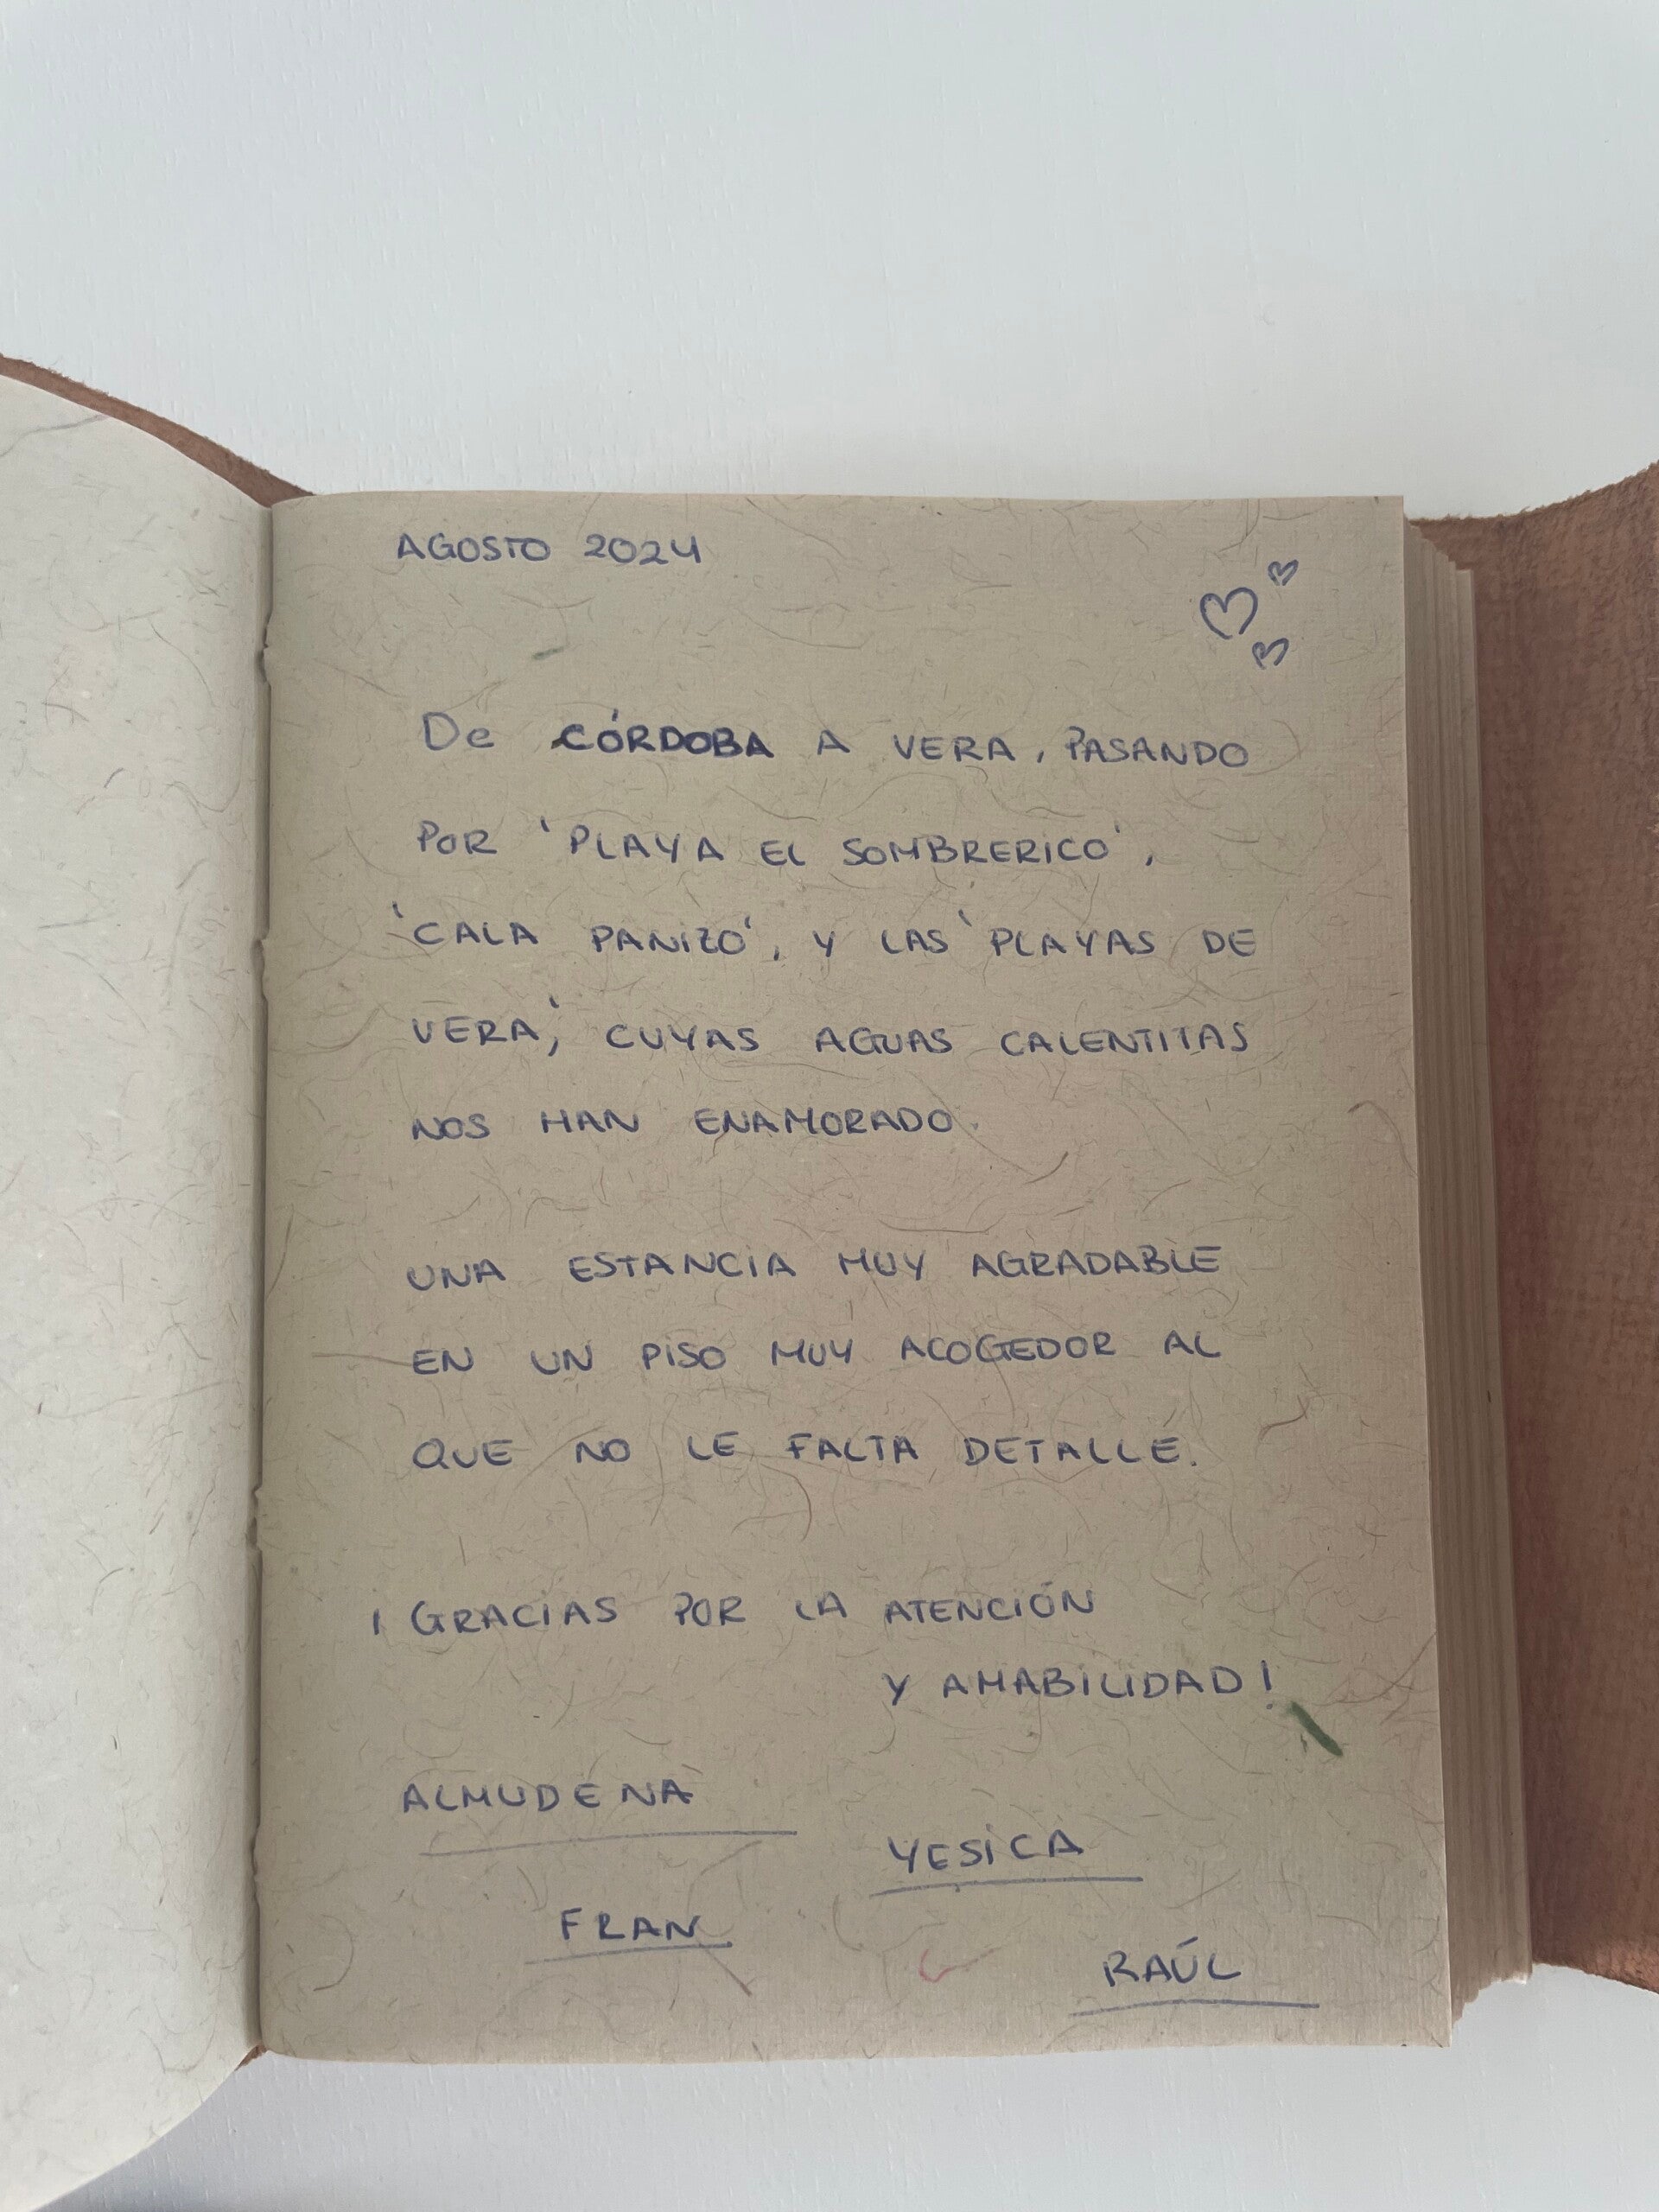 AGOSTO 2024
De CÓRDOBA A VERA, PASANDO
POR 'PLAYA EL SOMBRERICO',
'CALA PANIZO', Y LAS 'PLAYAS DE
VERA', CUYAS AGUAS CALENTITAS
NOS HAN ENAMORADO.
UNA ESTANCIA MUY AGRADABLE
EN UN PISO MUY ACOGEDOR AL
QUE NO LE FALTA DETALLE.
¡GRACIAS POR LA ATENCIÓN
Y AMABILIDAD!
ALMUDENA
YESICA
FRAN
RAÚL